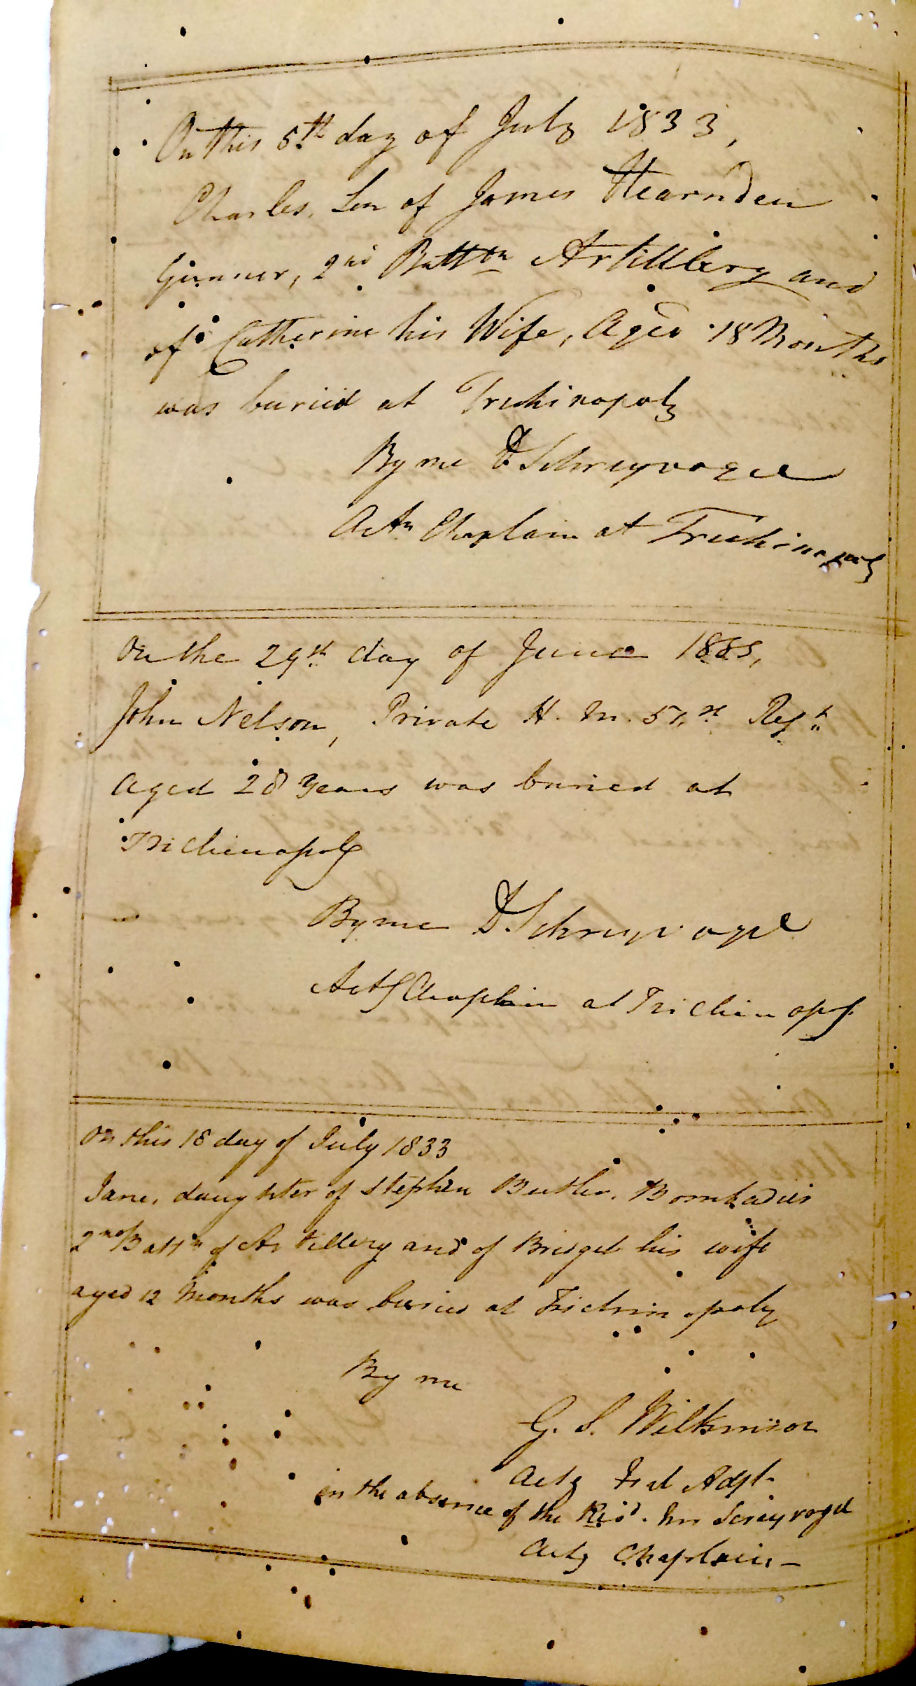 On this 5th day of July 1833,
Charles, Son of James Hearnden
Gunner, 2nd Battn Artillery and
of Catherine his Wife, Aged 18 Months
was buried at Trichinopoly
By me D Schreyvogel
Actn Chaplain at Trichinopoly
On the 29th day of June 1833,
John Nelson, Private H. M. 54th Regt
aged 28 Years was buried at
Trichinopoly
By me D. Schreyvogel
Actg Chaplain at Trichinopoly
On this 18 day of July 1833
Jane, daughter of Stephen Butler, Bombadier
2nd Battn of Artillery and of Bridget his wife
aged 12 Months was buried at Trichinopoly
By me
G. S. Wilkinson
Actg Adjt
in the absence of the Revd. Mr Screyvogel
Actg Chaplain —